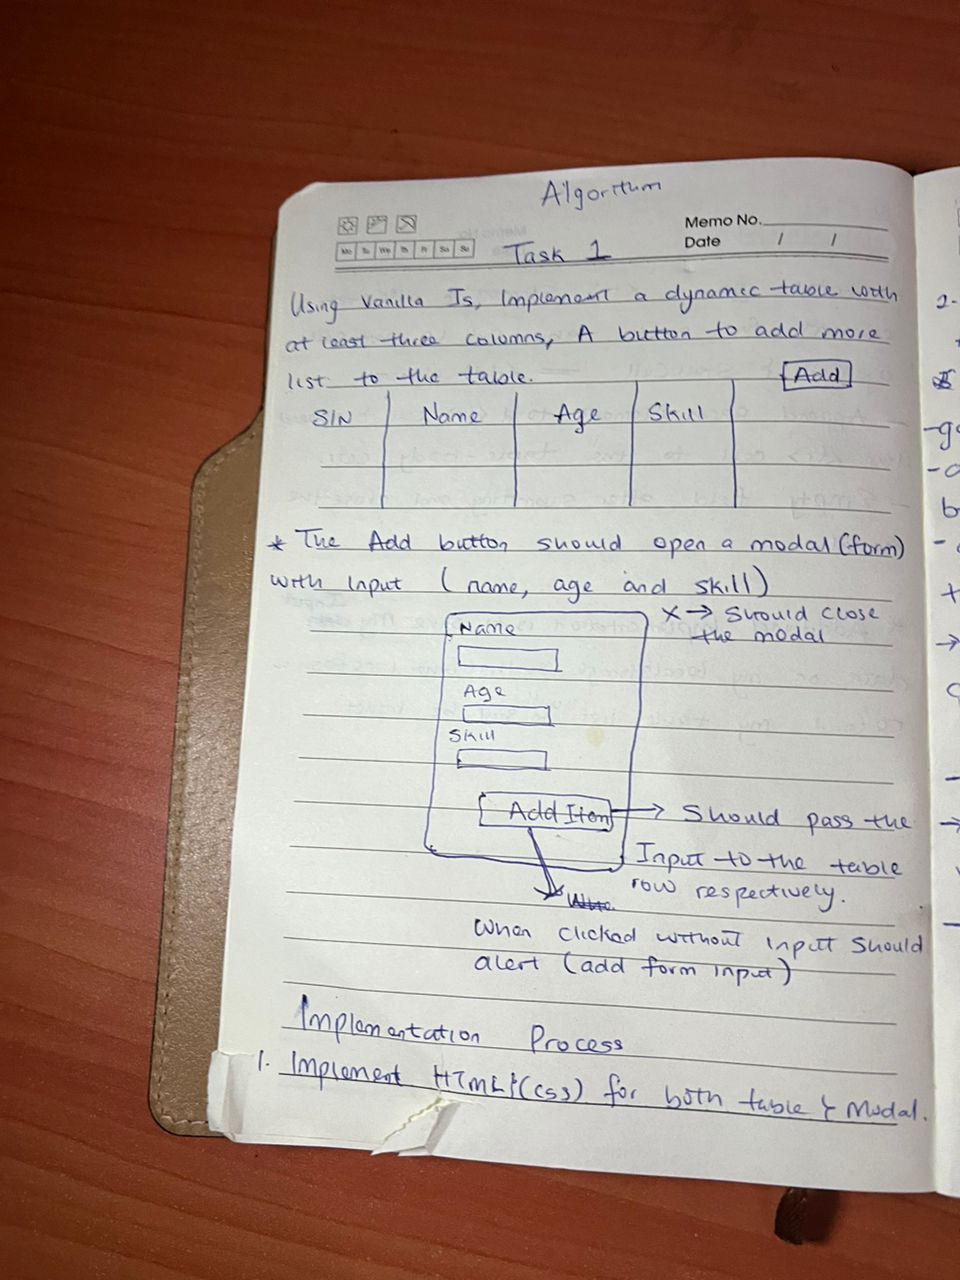 Algorithm
Memo No.
Mo Tu We Th Fr Sa Su
Date / /
Task 1
Using Vanilla Js, Implement a dynamic table with
at least three columns, A button to add more
list to the table.
Add
S/N Name Age Skill
* The Add button should open a modal (form)
with input (name, age and skill)
X → Should close
the modal
Name
Age
Skill
Add Item → Should pass the
Input to the table
row respectively.
When clicked without input should
alert (add form input)
Implementation Process
1. Implement HTML & (CSS) for both table & Modal.
2-